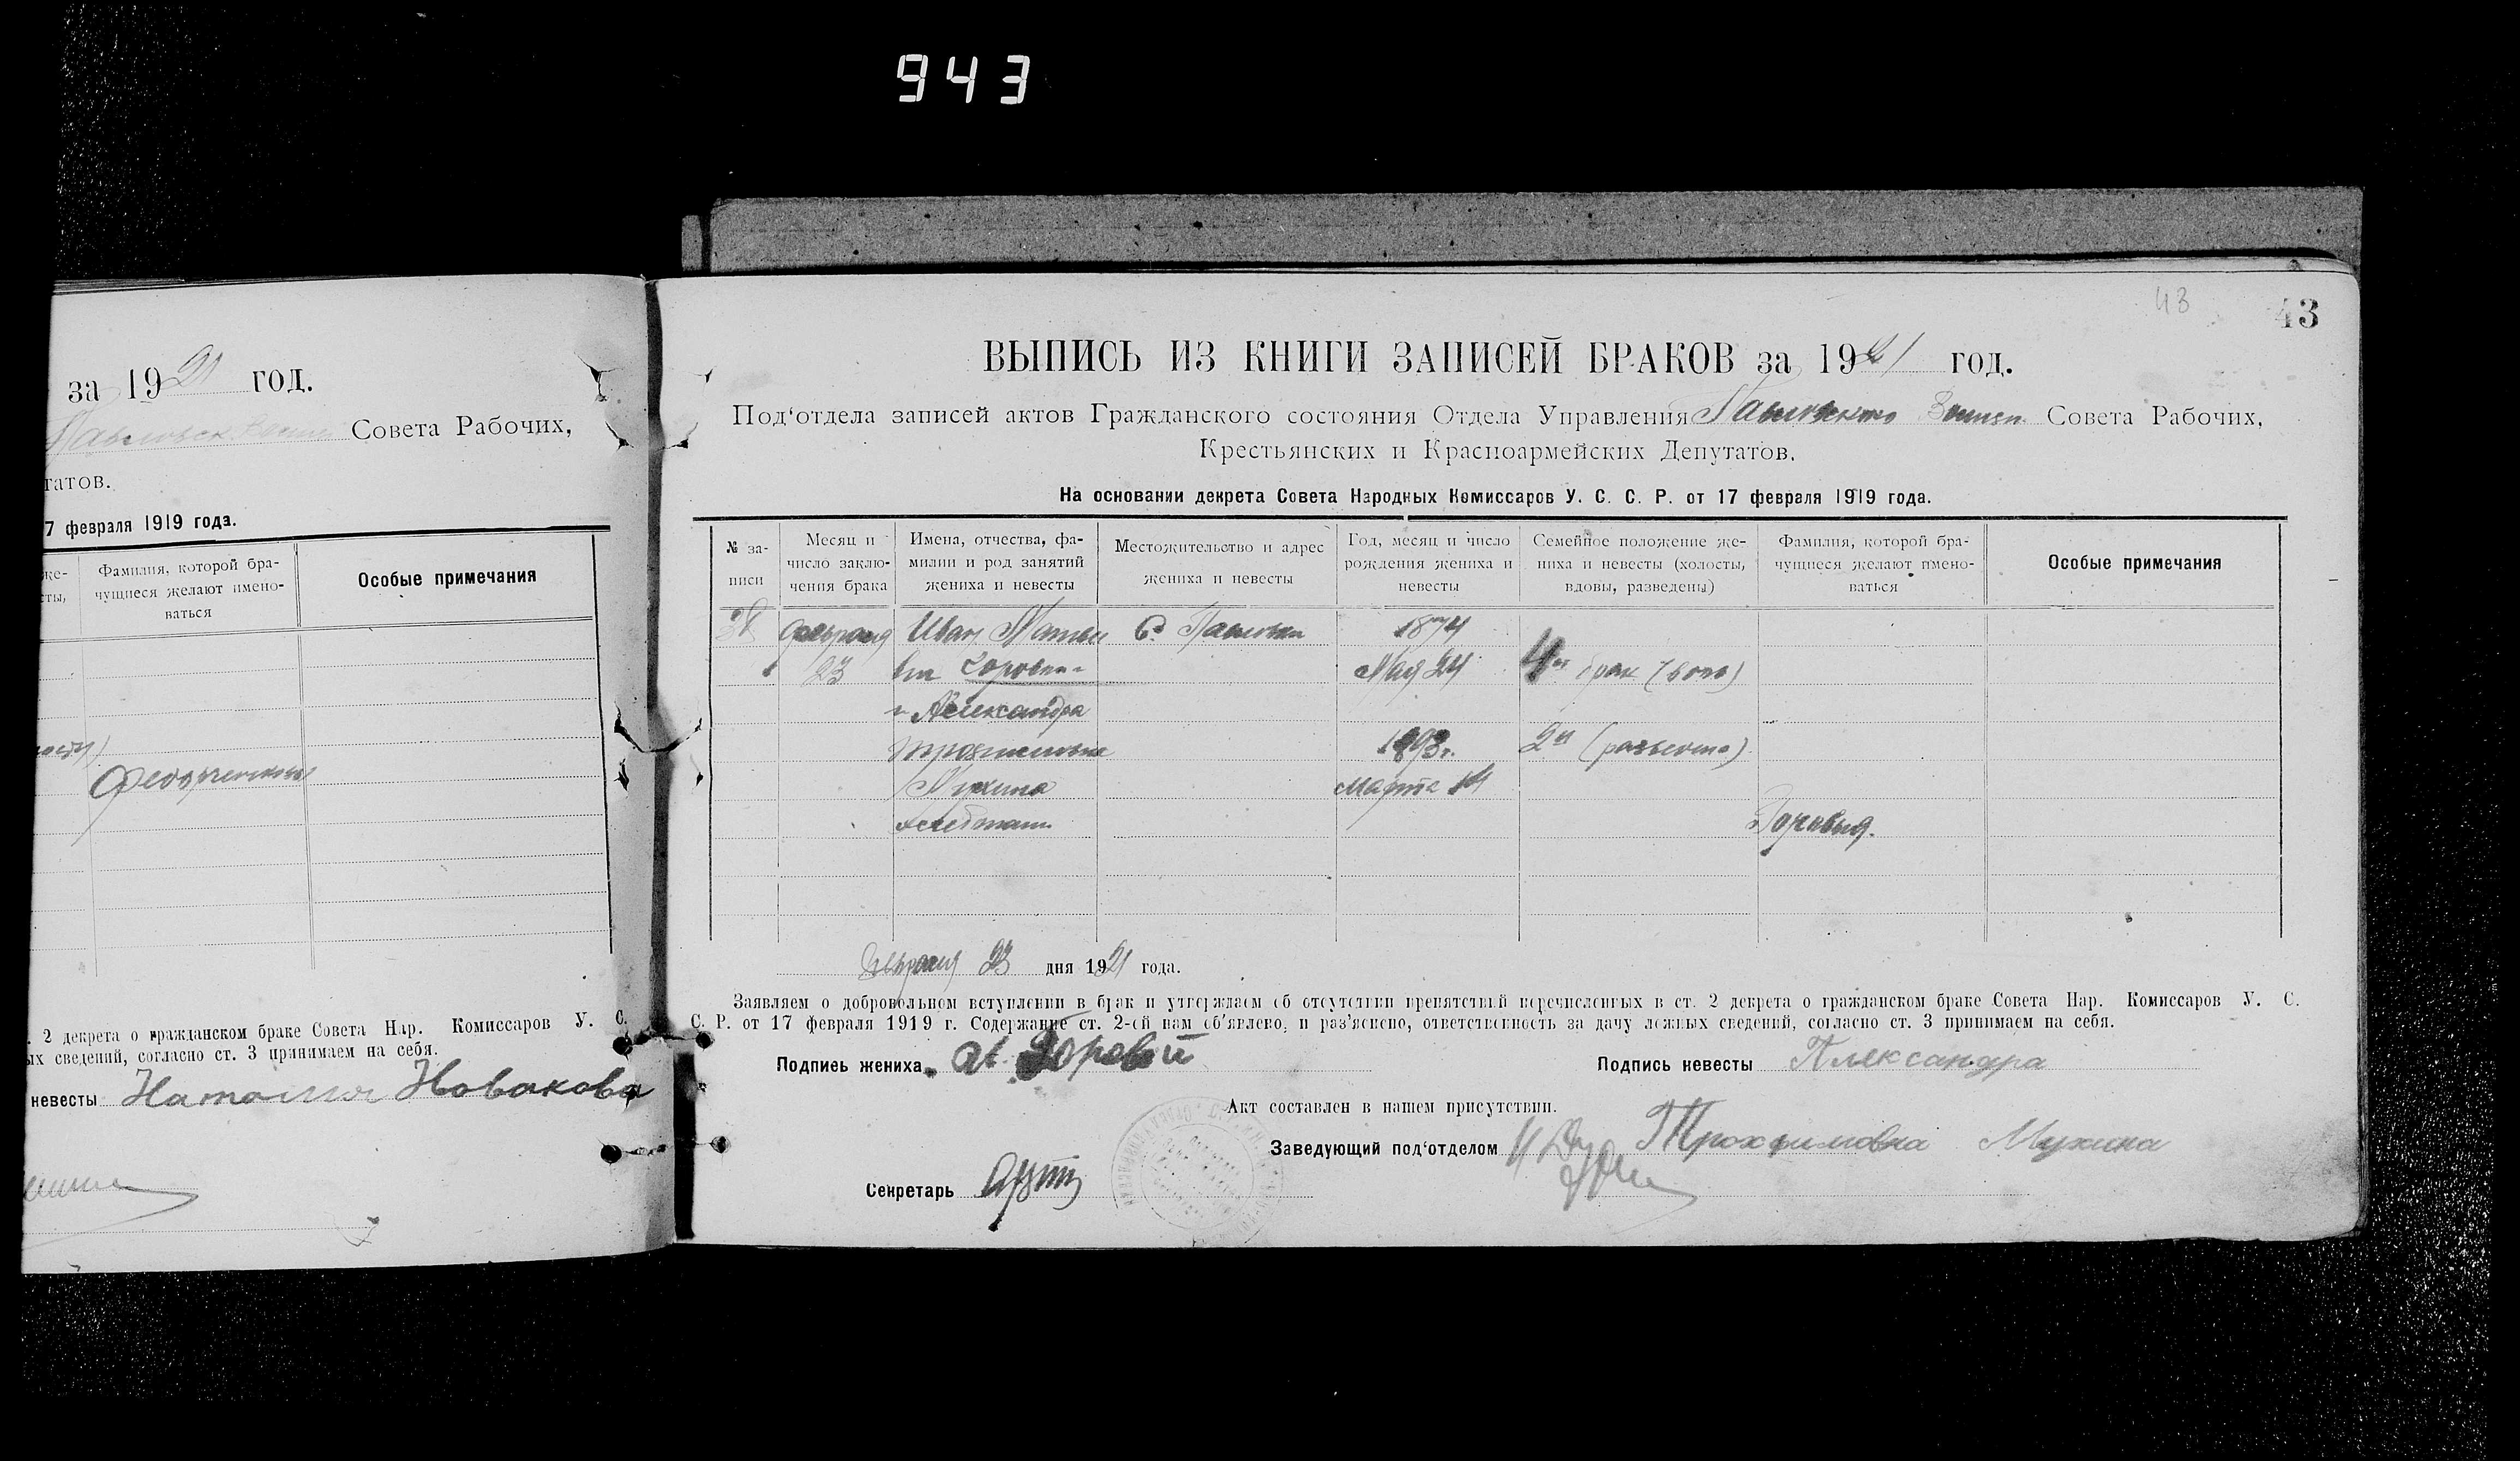 943
за 1921 год.
Совета Рабочих,
татов.
7 февраля 1919 года.
же-
сты,
Фамилия, которой бра-
чущиеся желают имено-
ваться
Особые примечания
. 2 декрета о гражданском браке Совета Нар. Комиссаров У. С.
ых сведений, согласно ст. 3 принимаем на себя.
невесты Наталия Новакова
43
43
ВЫПИСЬ ИЗ КНИГИ ЗАПИСЕЙ БРАКОВ за 1921 год.
Под‘отдела записей актов Гражданского состояния Отдела Управления Совета Рабочих,
Крестьянских и Красноармейских Депутатов.
На основании декрета Совета Народных Комиссаров У. С. С. Р. от 17 февраля 1919 года.
№ за-
писи
Месяц и
число заклю-
чения брака
Имена, отчества, фа-
милии и род занятий
жениха и невесты
Местожительство и адрес
жениха и невесты
Год, месяц и число
рождения жениха и
невесты
Семейное положение же-
ниха и невесты (холосты,
вдовы, разведены)
Фамилия, которой бра-
чущиеся желают имено-
ваться
Особые примечания
38 февраля Иван 1874
23 Мая 24 брак
Александра
1893г. 2й
Мухина Марта 14
Февраля 23 дня 1921 года.
Заявляем о добровольном вступлении в брак и утверждаем об отсутствии препятствий перечисленных в ст. 2 декрета о гражданском браке Совета Нар. Комиссаров У. С.
С. Р. от 17 февраля 1919 г. Содержание ст. 2-ой нам об‘явлено, и раз‘яснено, ответственность за дачу ложных сведений, согласно ст. 3 принимаем на себя.
Подпись жениха Боровой
Подпись невесты Александра
Акт составлен в нашем присутствии.
Заведующий под‘отделом
Трохимовна Мухина
Секретарь